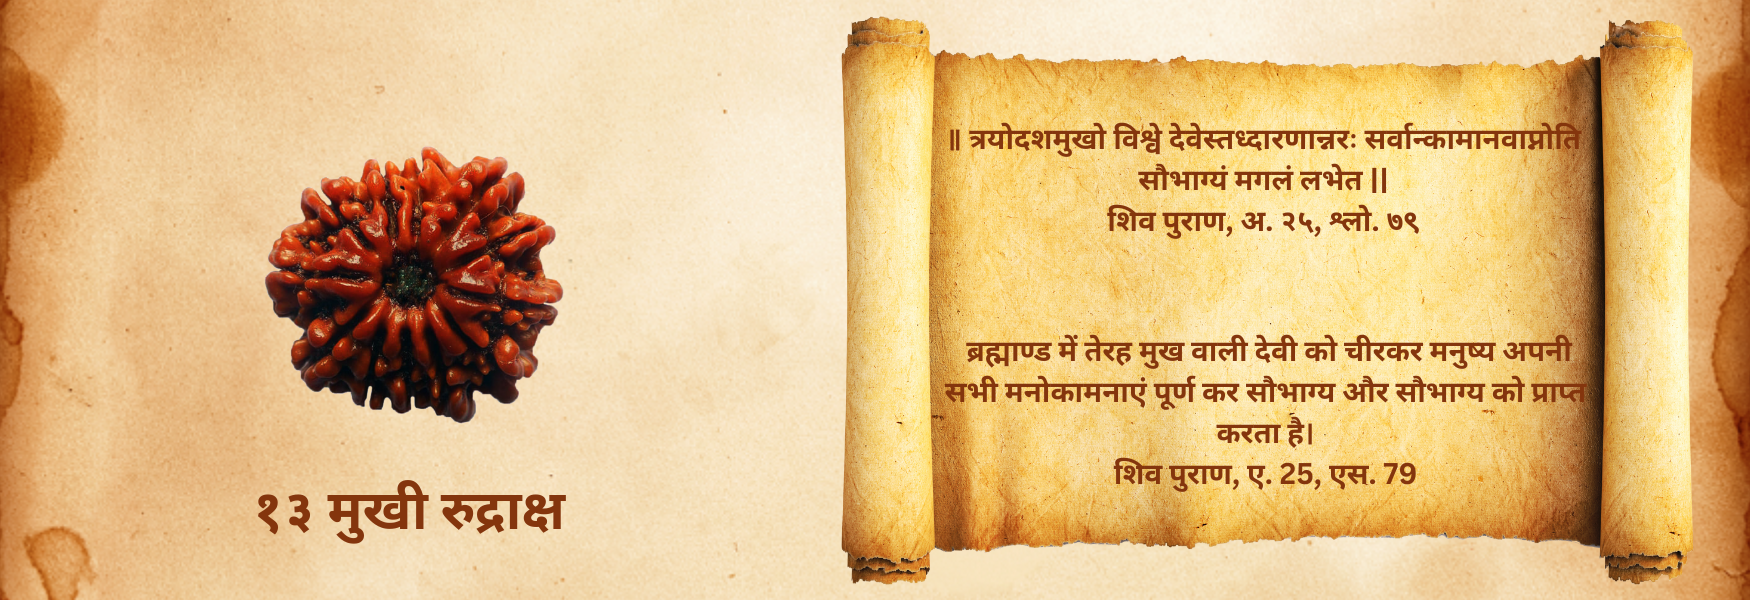 १३ मुखी रुद्राक्ष
॥ त्रयोदशमुखो विश्वे देवेस्तध्दारणान्नरः सर्वान्कामानवाप्नोति
सौभाग्यं मगलं लभेत ||
शिव पुराण, अ. २५, श्लो. ७९
ब्रह्माण्ड में तेरह मुख वाली देवी को चीरकर मनुष्य अपनी
सभी मनोकामनाएं पूर्ण कर सौभाग्य और सौभाग्य को प्राप्त
करता है।
शिव पुराण, ए. 25, एस. 79